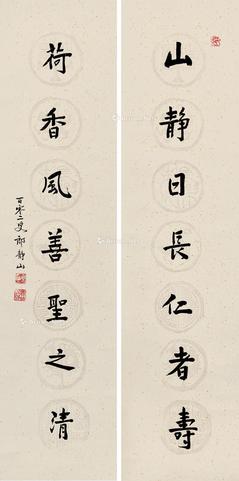 山静日長仁者壽
荷香風善聖之清
百零二叟郎靜山